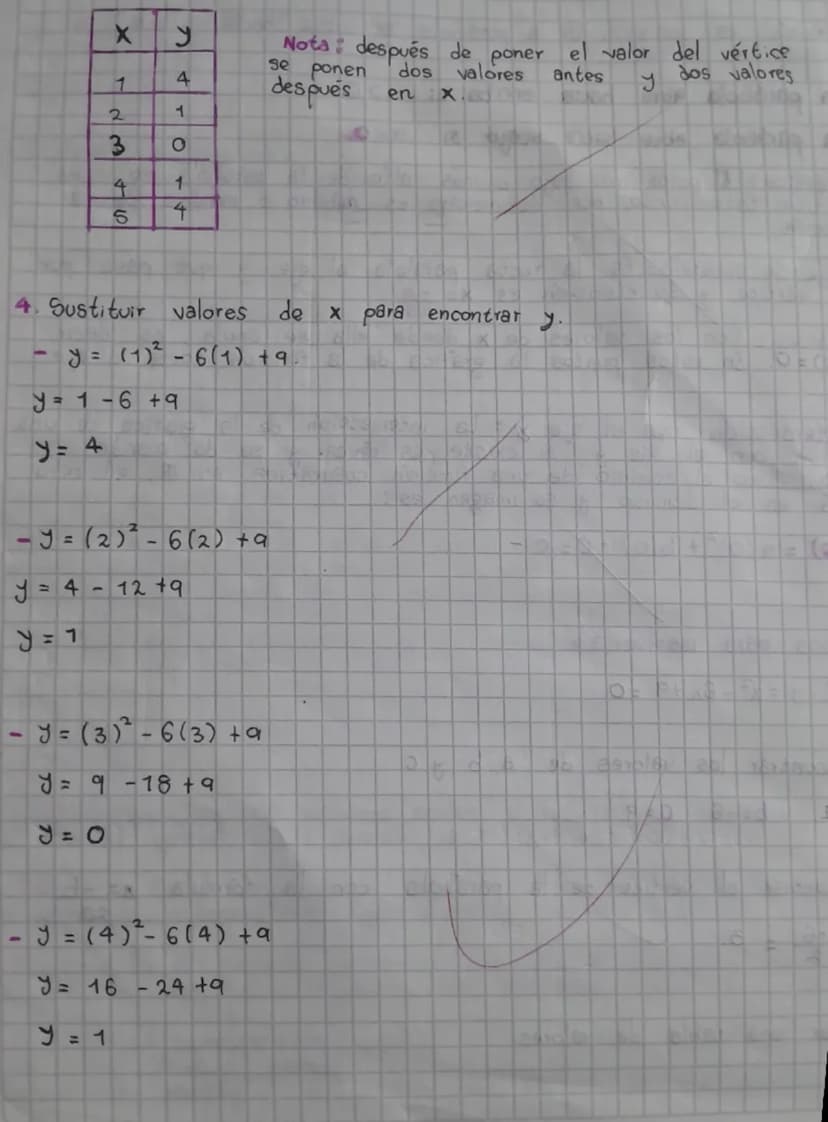 x y
1 4
2 1
3 0
4 1
5 4
Nota: después de poner el valor del vértice
se ponen dos valores antes y dos valores
después en x.
4. Sustituir valores de x para encontrar y.
- y = (1)² - 6(1) + 9.
y = 1 - 6 + 9
y = 4
- y = (2)² - 6(2) + 9
y = 4 - 12 + 9
y = 1
- y = (3)² - 6(3) + 9
y = 9 - 18 + 9
y = 0
- y = (4)² - 6(4) + 9
y = 16 - 24 + 9
y = 1